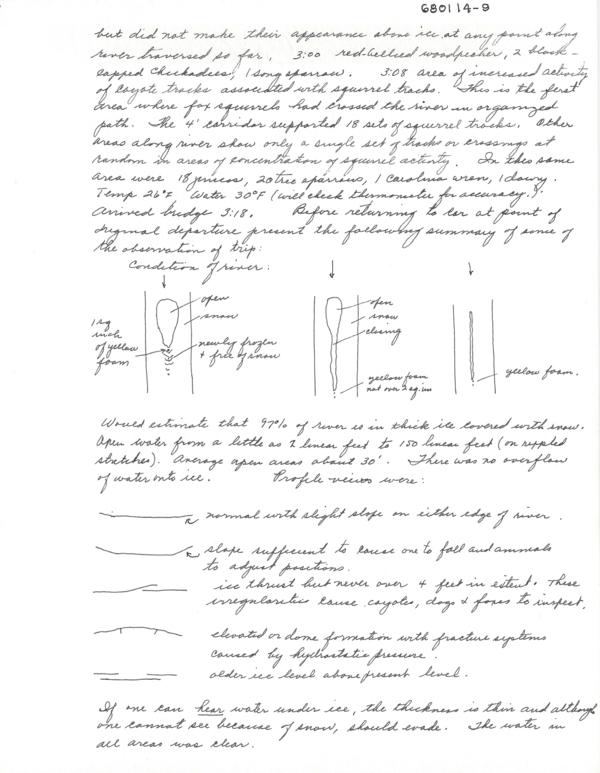 680114-9
but did not make their appearance above ice at any point along
river traversed so far. 3:00 red-bellied woodpecker, 2 black-
capped chickadees, 1 song sparrow. 3:08 area of increased activity
of coyote tracks associated with squirrel tracks. This is the first
area where fox squirrels had crossed the river in organized
path. The 4' corridor supported 18 sets of squirrel tracks. Other
areas along river show only a single set of tracks or crossings at
random in areas of concentration of squirrel activity. In this same
area were 18 juncos, 20 tree sparrows, 1 Carolina wren, 1 downy.
Temp 26°F Water 30°F (will check thermometer for accuracy!).
Arrived bridge 3:18. Before returning to car at point of
original departure present the following summary of some of
the observation of trip:
Condition of river:
open
snow
1 sq
inch
of yellow
foam
newly frozen
& free of snow
open
snow
closing
yellow foam
not over 2 sq. in
yellow foam.
Would estimate that 97% of river is in thick ice covered with snow.
Open water from a little as 2 linear feet to 150 linear feet (on rippled
stretches). Average open areas about 30'. There was no overflow
of water onto ice. Profile views were:
normal with slight slope on either edge of river.
slope sufficient to cause one to fall and animals
to adjust positions.
ice thrust but never over 4 feet in extent. These
irregularities cause coyotes, dogs & foxes to inspect.
elevated or dome formation with fracture systems
caused by hydrostatic pressure.
older ice level above present level.
If one can hear water under ice, the thickness is thin and although
one cannot see because of snow, should evade. The water in
all areas was clear.